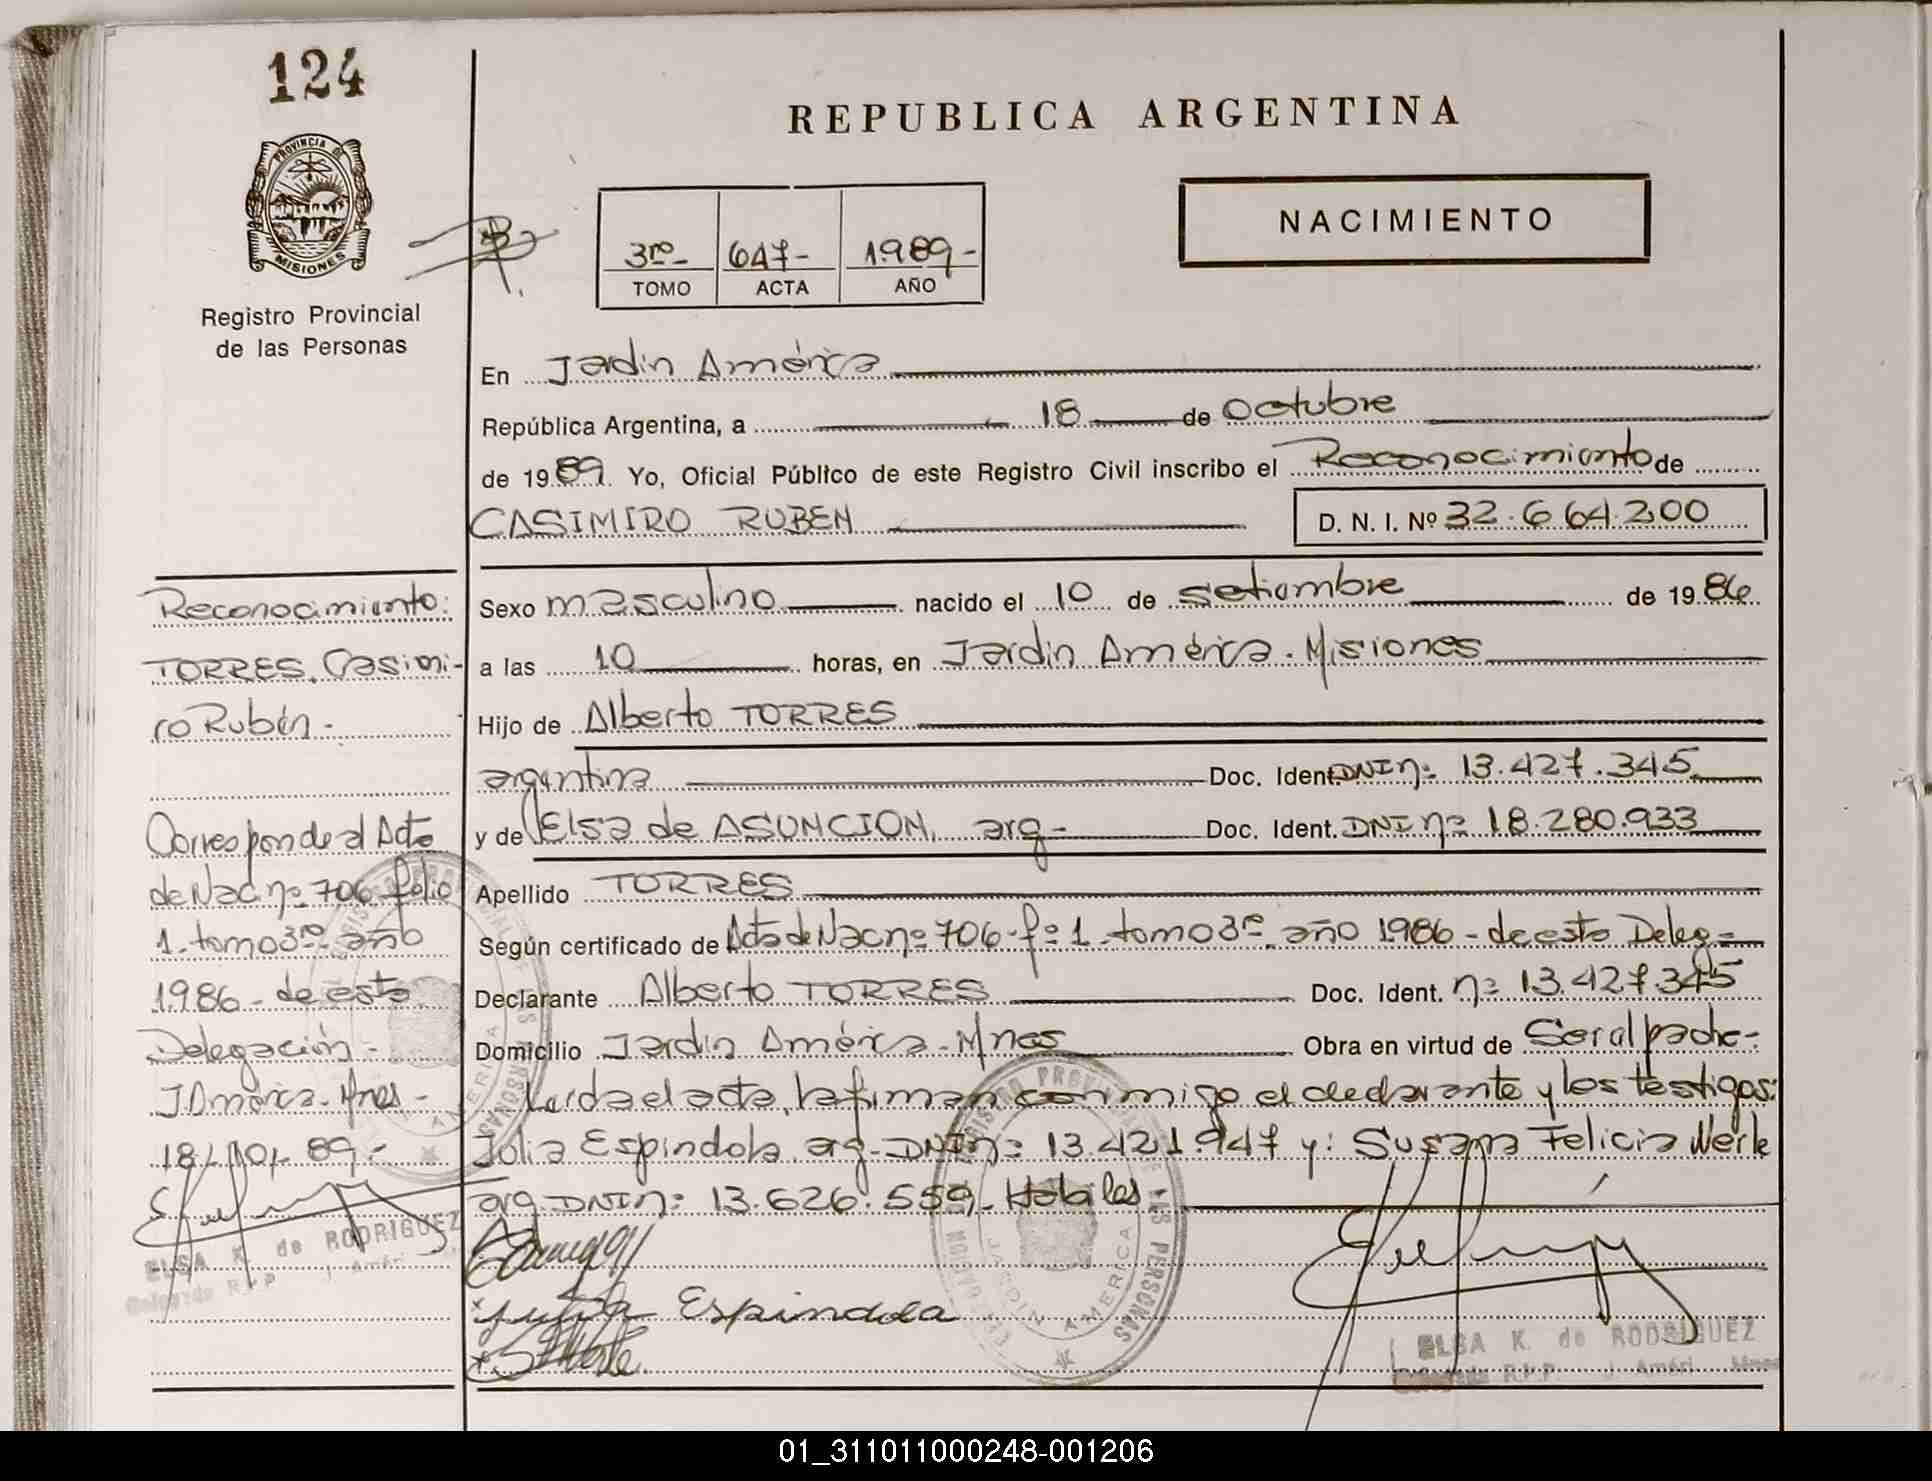 124
PROVINCIA DE
MISIONES
Registro Provincial
de las Personas
REPUBLICA ARGENTINA
NACIMIENTO
3ro- 647- 1989-
TOMO ACTA AÑO
En Jardín América
República Argentina, a 18 de Octubre
de 1989. Yo, Oficial Público de este Registro Civil inscribo el Reconocimiento de
CASIMIRO RUBEN D. N. I. Nº 32.664.200
Sexo masculino nacido el 10 de setiembre de 1986
a las 10 horas, en Jardín América. Misiones
Hijo de Alberto TORRES
argentina Doc. Ident. DNI nº 13.427.345
y de Elsa de ASUNCION, arg- Doc. Ident. DNI nº 18.280.933
Apellido TORRES
Según certificado de Acta de Nac nº 706-fº 1-tomo 3º año 1986-de esta Deleg=
Declarante Alberto TORRES Doc. Ident. nº 13.427.345
Domicilio Jardín América-Mnes Obra en virtud de Ser al padre-
Leída el acta, la firman conmigo el declarante y los testigos:
Julia Espíndola arg-DNI nº 13.421.947 y: Susana Felicia Werle
arg DNI nº 13.626.559-Habiles
Julia Espindola
S Werle
ELSA K. de RODRIGUEZ
Delegada R.P.P. J. Améri Mnes
Reconocimiento:
TORRES, Casimi-
ro Rubén-
Corresponde al Acta
de Nac nº 706 folio
1-tomo 3ro año
1986-de esta
Delegación-
J América-Mnes-
18/-10/-89-
ELSA K. de RODRIGUEZ
Delegada R.P.P. J. Améri
REGISTRO PROVINCIAL DE LAS PERSONAS
DELEGACION
JARDIN AMERICA
01_311011000248-001206